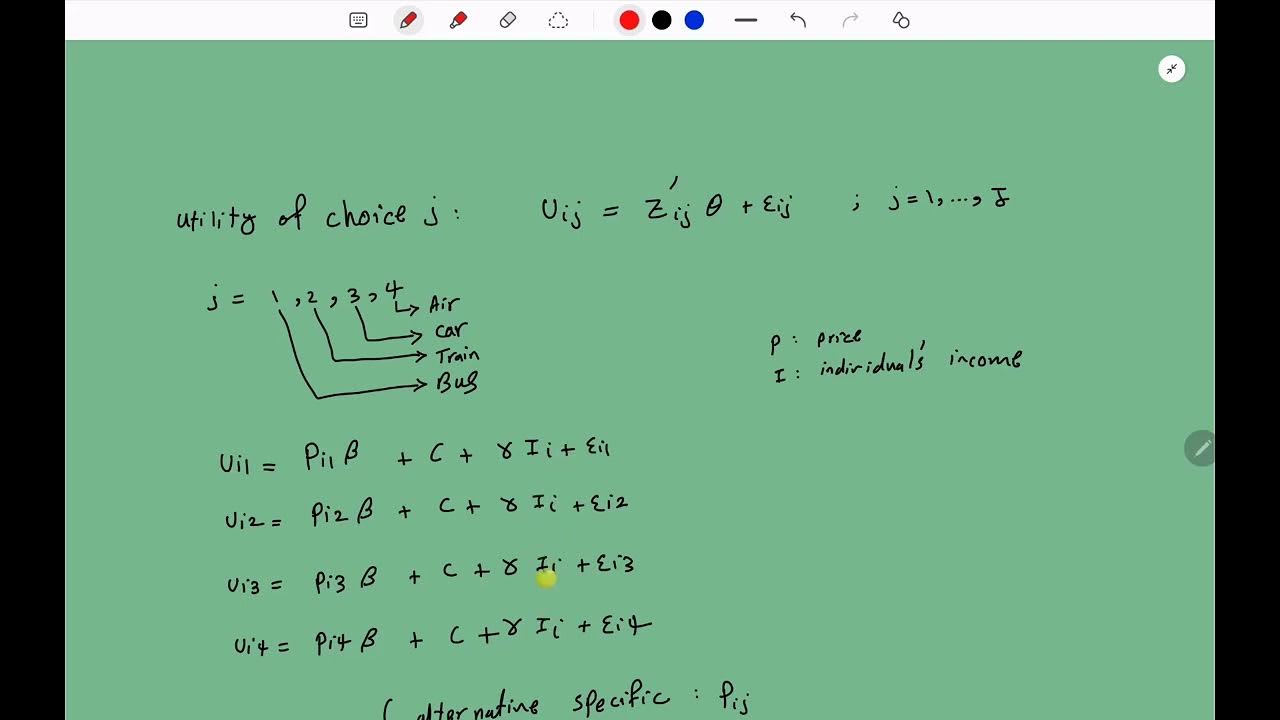 utility of choice j : Uij = Z'ij θ + εij ; j = 1, ..., J
j = 1, 2, 3, 4
Air
car
Train
Bus
P : price
I : individuals' income
Ui1 = Pi1 β + C + γ Ii + εi1
Ui2 = Pi2 β + C + γ Ii + εi2
Ui3 = Pi3 β + C + γ Ii + εi3
Ui4 = Pi4 β + C + γ Ii + εi4
alternative specific : Pij